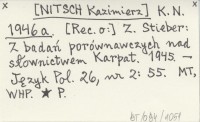 [NITSCH Kazimierz] K. N.
1946a. [Rec. o:] Z. Stieber:
Z badań porównawczych nad
słownictwem Karpat. 1945. —
Język Pol. 26, nr 2: 55. MT,
WHP. ★ P.